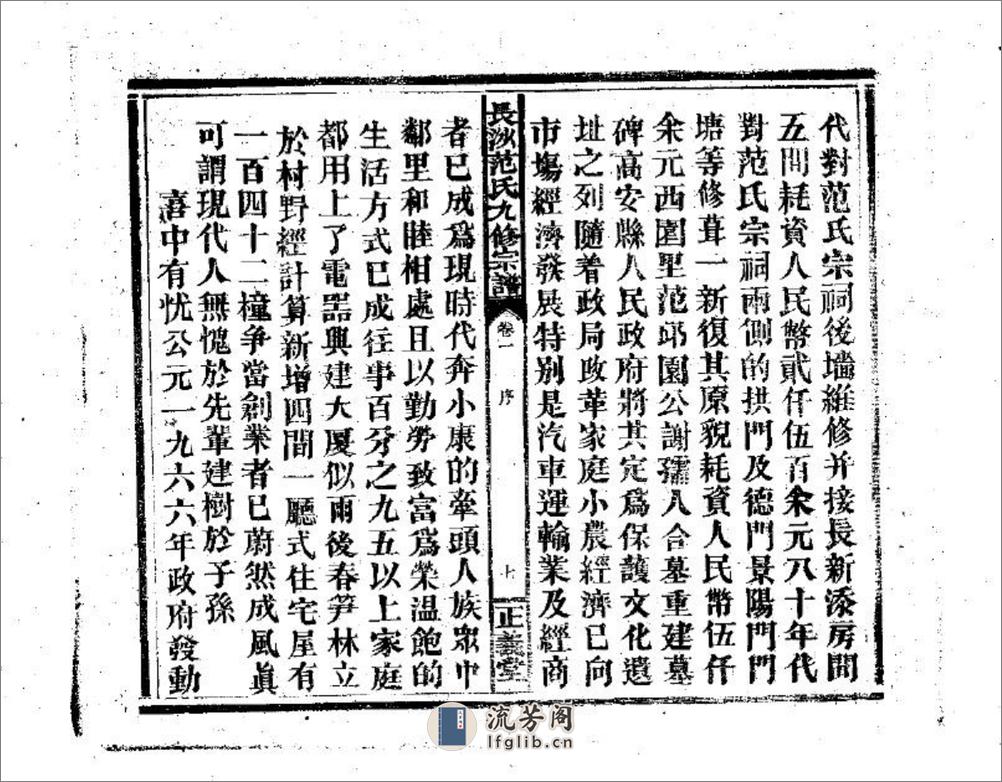 代對范氏宗祠後墻維修并接長新添房間
五間耗資人民幣貳仟伍百余元八十年代
對范氏宗祠兩側的拱門及德門景陽門門
塘等修葺一新復其原貌耗資人民幣伍仟
余元西園里范邱園公謝孺人合墓重建墓
碑高安縣人民政府將其定爲保護文化遺
址之列隨着政局政革家庭小農經濟已向
市塲經濟發展特别是汽車運輸業及經商
長沙范氏九修宗譜
卷一
序
七
正義堂
者已成爲現時代奔小康的牽頭人族眾中
鄰里和睦相處且以勤勞致富爲榮温飽的
生活方式已成往事百分之九五以上家庭
都用上了電器興建大厦似雨後春笋林立
於村野經計算新增四間一廳式住宅屋有
一百四十二橦争當創業者已蔚然成風眞
可謂現代人無愧於先輩建樹於子孫
喜中有忧公元一九六六年政府發動
流芳阁
lfglib.cn